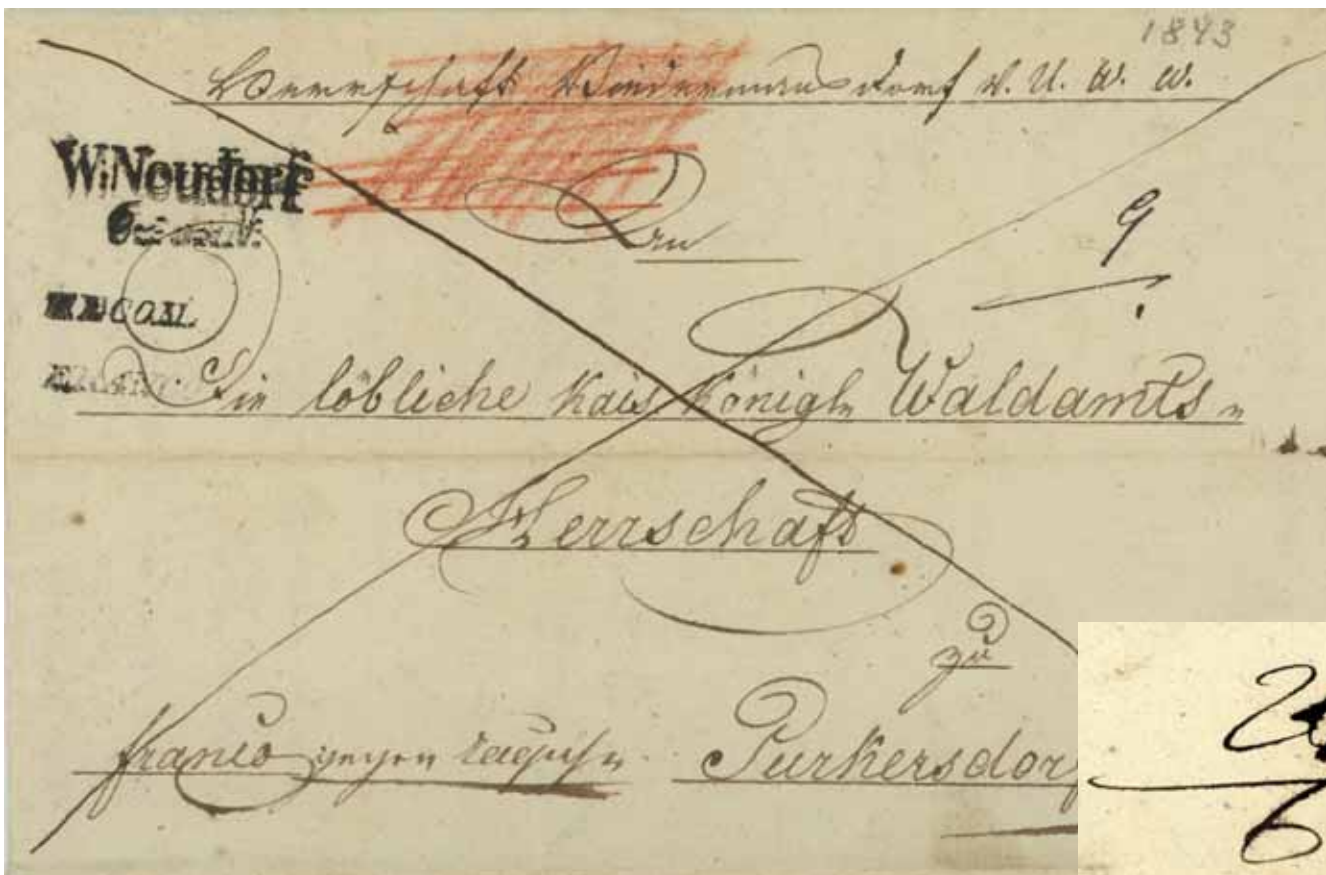 1843
Herrschaft Biedermansdorf V. U. W. W.
W. Neudorf
An
9
RECOM.
FRANCO
Die löbliche Kais. Königl. Waldamts-
Herrschaft
zu
franco gegen Purkersdorf
6